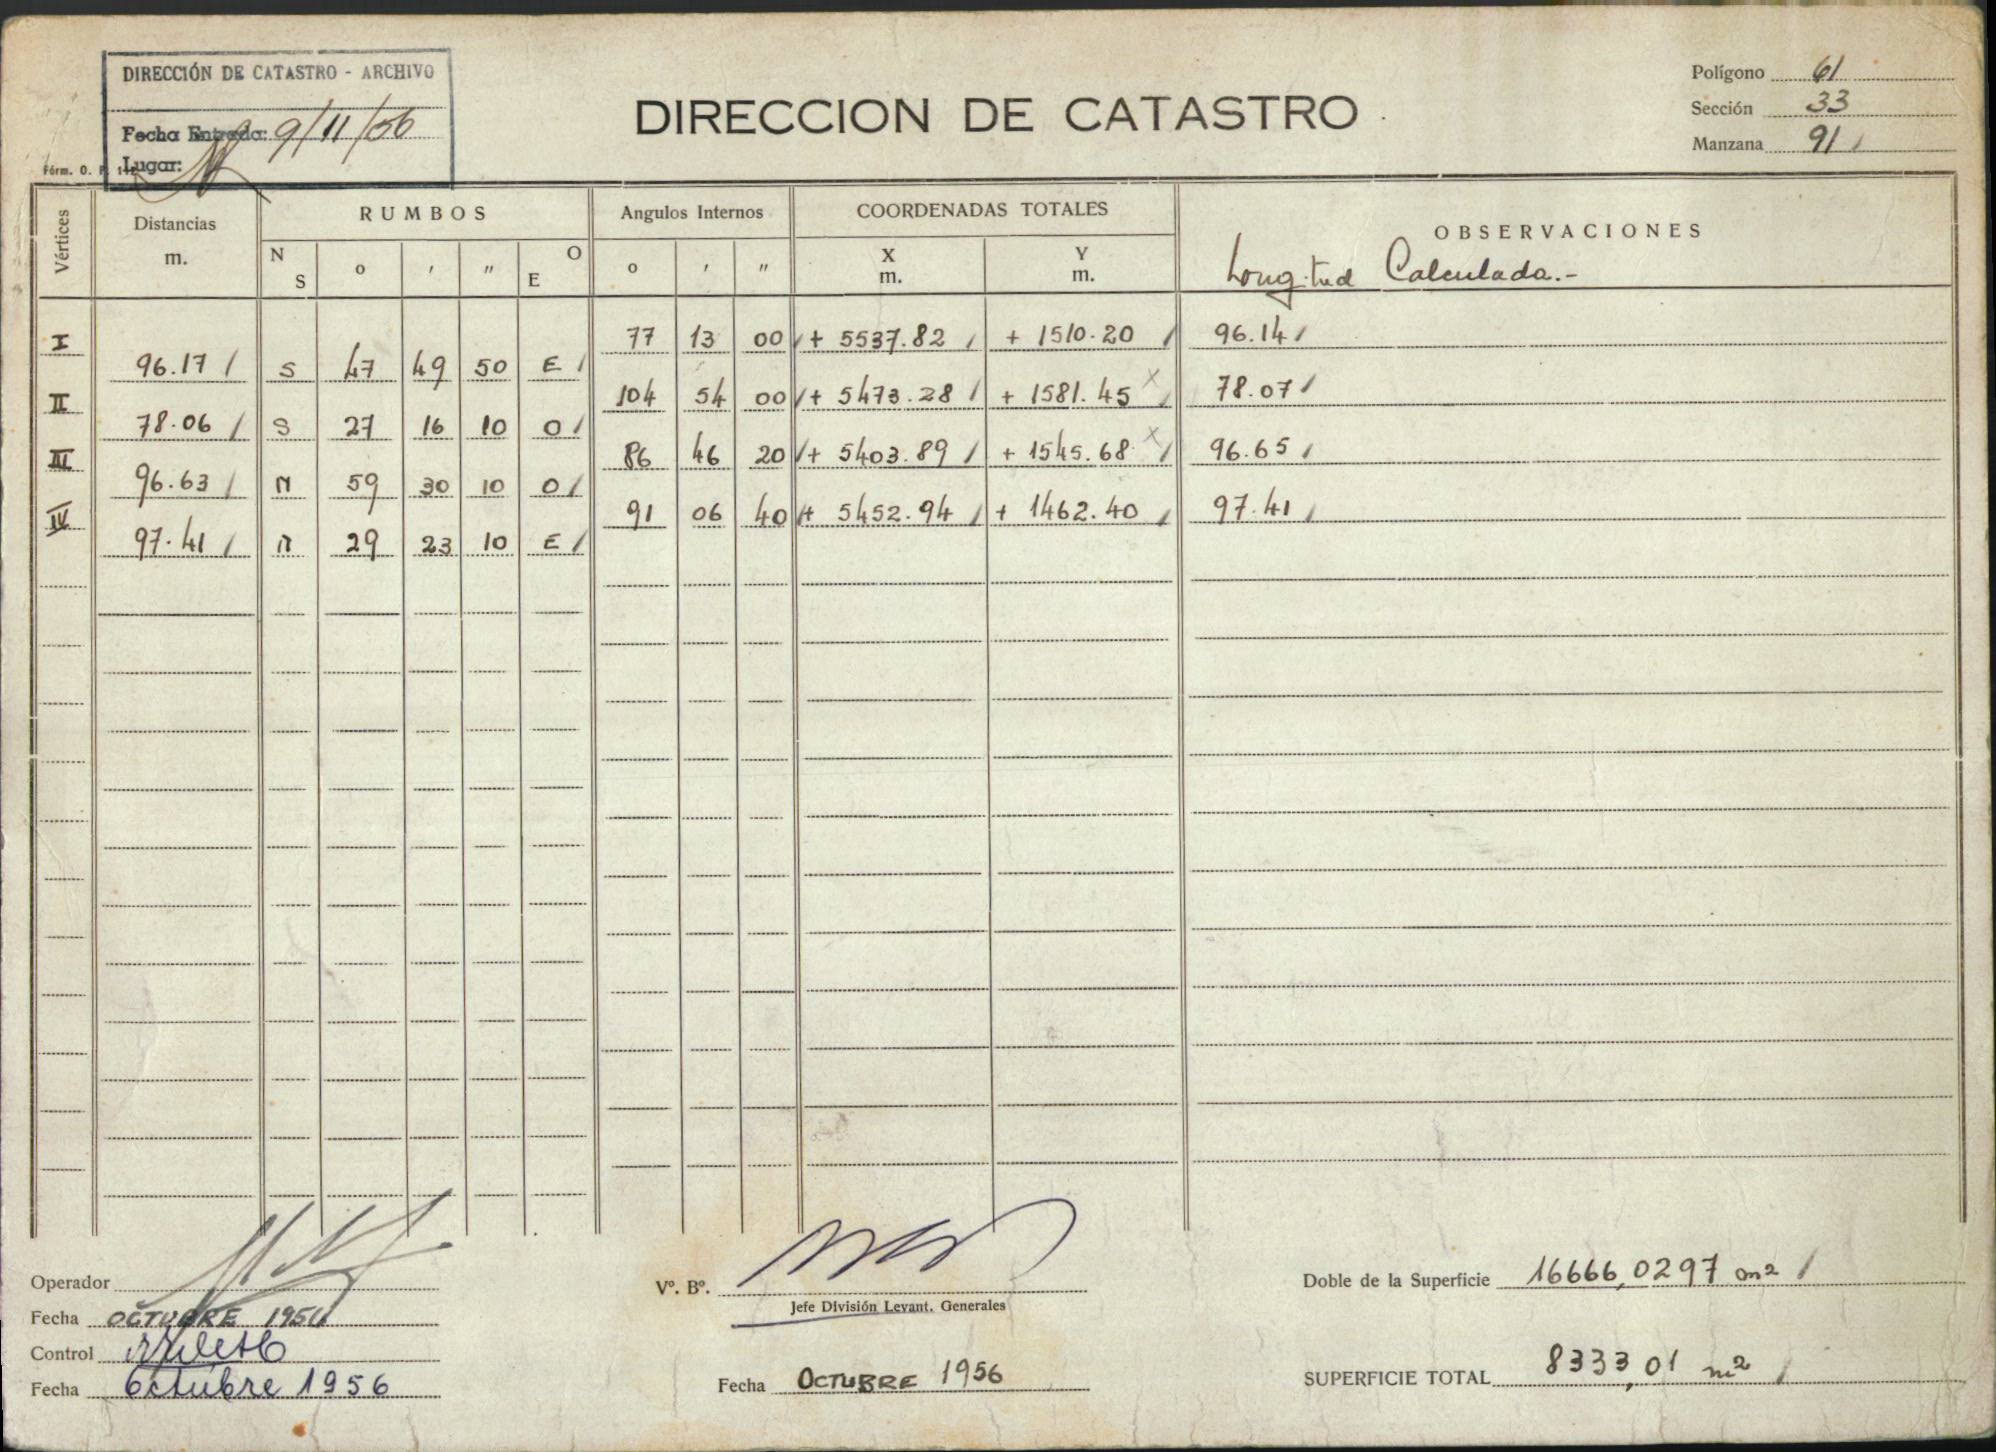 DIRECCIÓN DE CATASTRO - ARCHIVO
Fecha Entrada: 9/11/56
Lugar:
Fórm. O. P.
DIRECCION DE CATASTRO
Polígono 61
Sección 33
Manzana 91
Vértices Distancias m. RUMBOS N S o ' '' O E Angulos Internos o ' '' COORDENADAS TOTALES X m. Y m. OBSERVACIONES
Longitud Calculada.-
I 77 13 00 + 5537.82 + 1510.20 96.14
96.17 S 47 49 50 E
II 104 54 00 + 5473.28 + 1581.45 x 78.07
78.06 S 27 16 10 O
III 86 46 20 + 5403.89 + 1545.68 x 96.65
96.63 N 59 30 10 O
IV 91 06 40 + 5452.94 + 1462.40 97.41
97.41 N 29 23 10 E
Operador
Fecha OCTUBRE
Control
Fecha Octubre 1956
Vº. Bº.
Jefe División Levant. Generales
Fecha OCTUBRE 1956
Doble de la Superficie 16666,0297 m2
SUPERFICIE TOTAL 8333,01 m2